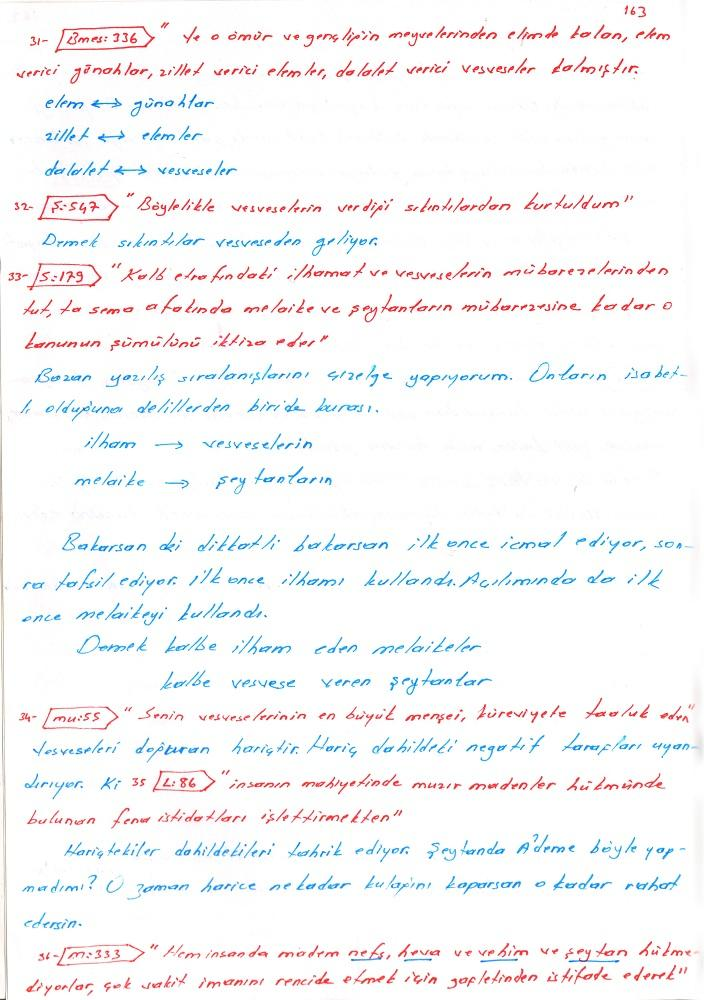 163
31- Bmes: 336 " Ve o ömür ve gençliğin meyvelerinden elimde kalan, elem
verici günahlar, zillet verici elemler, dalalet verici vesveseler kalmıştır.
elem ↔ günahlar
zillet ↔ elemler
dalalet ↔ vesveseler
32- Ş:547 " Böylelikle vesveselerin verdiği sıkıntılardan kurtuldum"
Demek sıkıntılar vesveseden geliyor.
33- S:179 " Kalb etrafındaki ilhamat ve vesveselerin mübarezelerinden
tut, ta sema afakında melaike ve şeytanların mübarezesine kadar o
kanunun şümulünü iktiza eder"
Bazan yazılış sıralanışlarını çizelge yapıyorum. Onların isabet-
li olduğuna delillerden biride burası.
ilham → vesveselerin
melaike → şeytanların
Bakarsan ki dikkatli bakarsan ilk önce icmal ediyor, son-
ra tafsil ediyor. İlk önce ilhamı kullandı. Açılımında da ilk
önce melaikeyi kullandı.
Demek kalbe ilham eden melaikeler
kalbe vesvese veren şeytanlar
34- mu:55 " Senin vesveselerinin en büyük menşei, küreviyete taaluk eden"
Vesveseleri doğuran hariçtir. Hariç dahildeki negatif tarafları uyan-
dırıyor. Ki 35 L:86 " insanın mahiyetinde muzır madenler hükmünde
bulunan fena istidatları işlettirmekten"
Hariçtekiler dahildekileri tahrik ediyor. Şeytanda Âdeme böyle yap-
madımı? O zaman harice ne kadar kulağını kaparsan o kadar rahat
edersin.
36- m:333 " Hem insanda madem nefs, heva ve vehim ve şeytan hükme-
diyorlar, çok vakit imanını rencide etmek için gafletinden istifade ederek"